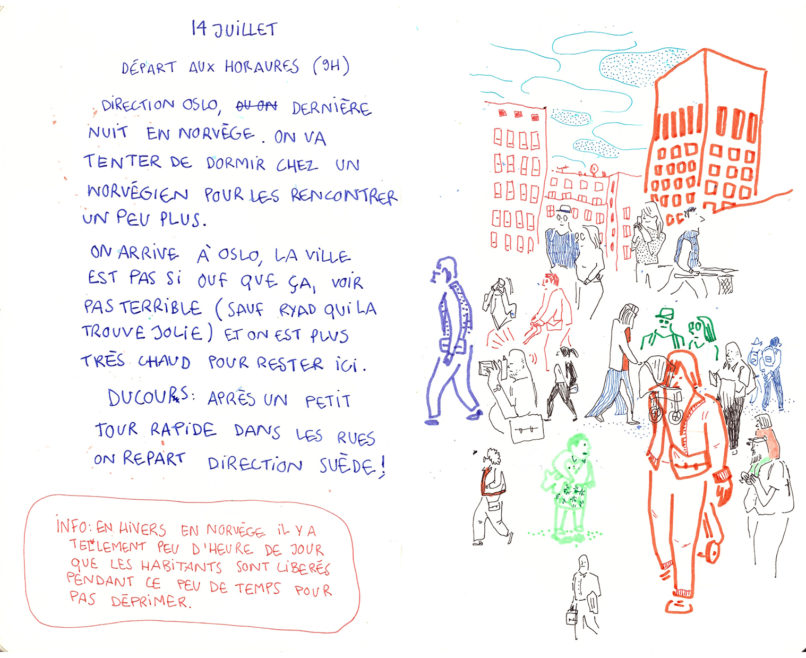 14 JUILLET
DÉPART AUX HORAURES (9H)
DIRECTION OSLO, OU ON DERNIÈRE
NUIT EN NORVÈGE. ON VA
TENTER DE DORMIR CHEZ UN
NORVÉGIEN POUR LES RENCONTRER
UN PEU PLUS.
ON ARRIVE À OSLO, LA VILLE
EST PAS SI OUF QUE ÇA, VOIR
PAS TERRIBLE (SAUF RYAD QUI LA
TROUVE JOLIE) ET ON EST PLUS
TRÈS CHAUD POUR RESTER ICI.
DUCOURS: APRÈS UN PETIT
TOUR RAPIDE DANS LES RUES
ON REPART DIRECTION SUÈDE!
INFO: EN HIVERS EN NORVÈGE IL Y A
TELLEMENT PEU D'HEURE DE JOUR
QUE LES HABITANTS SONT LIBÉRÉS
PENDANT CE PEU DE TEMPS POUR
PAS DÉPRIMER.